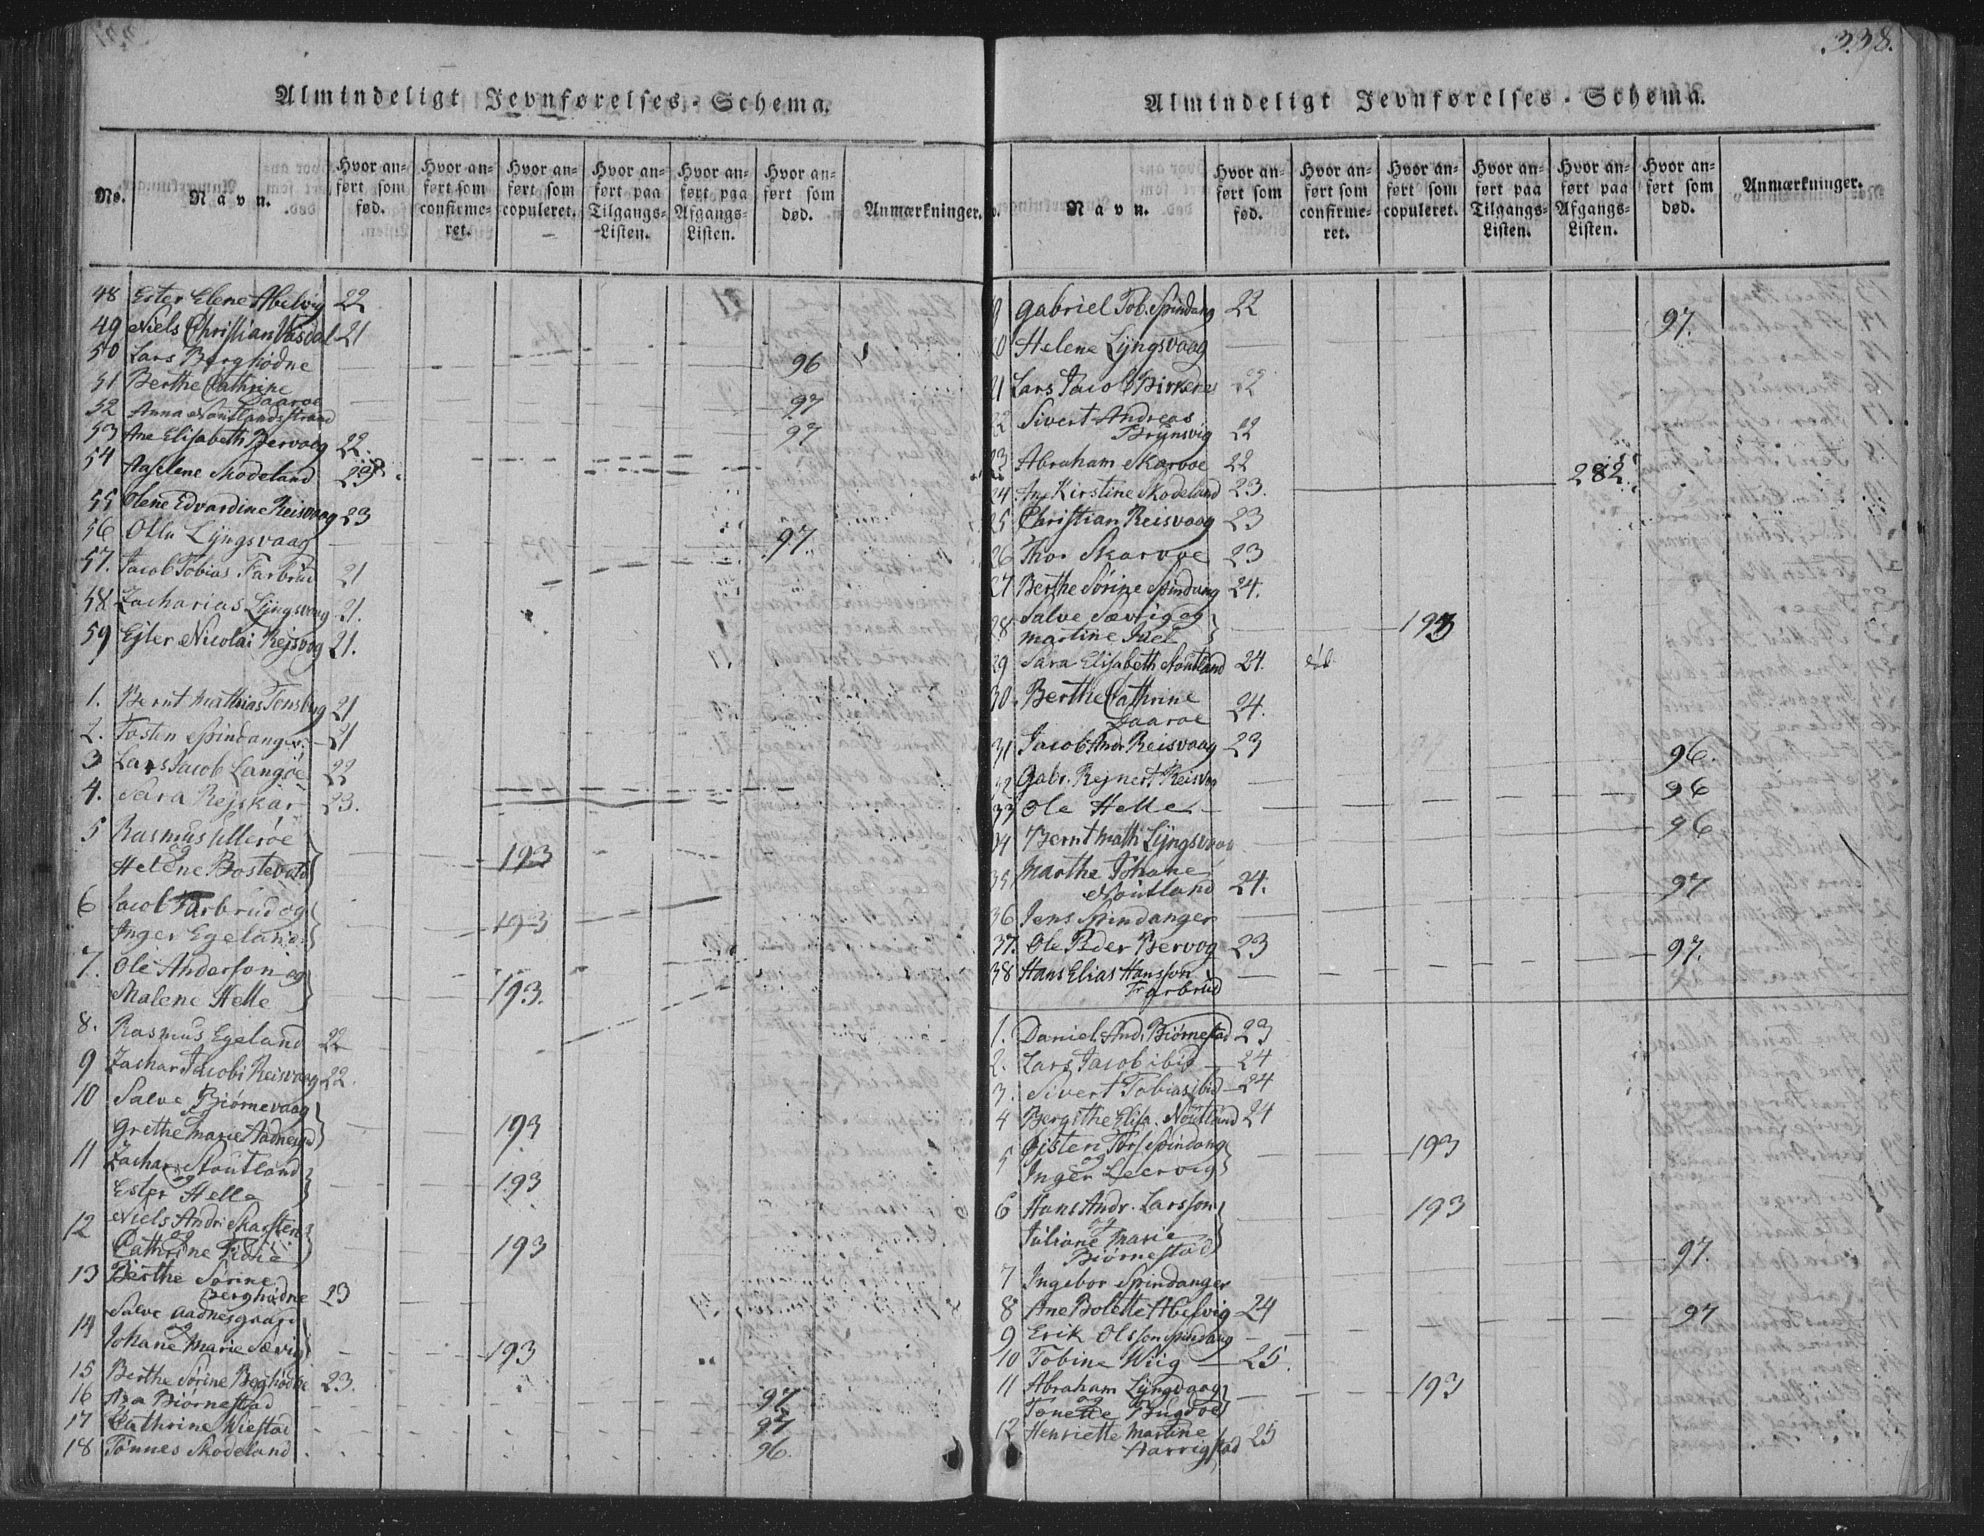 Almindeligt Jevnførelses-Schema.
No.
Navn.
Hvor anført som fød.
Hvor anført som confirmeret.
Hvor anført som copuleret.
Hvor anført paa Tilgangs-Listen.
Hvor anført paa Afgangs-Listen.
Hvor anført som død.
Anmærkninger.
48 Ester Elene Abelvig 22
49 Niels Christian 21
50 Lars Berghødne 96
51 Berthe Cathrine Daaroe 97
52 Anna Noutlandsstrand 97
53 Ane Elisabeth Bervaag 22.
54 Aaselene Skodeland 23
55 Olene Edvardine Reisvaag 23
56 Olla Lÿngsvaag 97.
57. Jacob Tobias Farbrud 21
58. Zacharias Lÿngsvaag 21.
59 Ejler Nicolai Rejsvog 21.
1. Bernt Mathias Tonsberg 21
2. Tosten Spindanger 21
3 Lars Jacob Langøe 22
4. Sara Rejskar 23.
5 Rasmus Ullerøe
og
Helene Bostevold 193
6 Jacob Farbrud og
Inger Egeland 193
7. Ole Anderson og
Malene Helle 193.
8. Rasmus Egeland 22
9 Zachar Jacobi Reisvaag 22.
10 Salve Biørnevaag
Grethe Marie Aadnesgd 193
11 Zachar Noutland
og
Ester Helle 193
12 Niels Andr: Skarsten
og
Cathrine Fidie 193
13 Berthe Sørine
Berghødne 23
14 Salve Aadnesgaard
og
Johane Marie Sævig 193
15 Berthe Sørine Beghødne 23.
16 Asa Biørnestad 97
17 Cathrine Wiestad 97
18 Tønnes Skodeland 96.
338.
Almindeligt Jevnførelses-Schema.
Navn.
Hvor anført som fød.
Hvor anført som confirmeret.
Hvor anført som copuleret.
Hvor anført paa Tilgangs-Listen.
Hvor anført paa Afgangs-Listen.
Hvor anført som død.
Anmærkninger.
9 Gabriel Tob. Spindang 22
20 Helene Lÿngsvaag 97.
21 Lars Jacob Birkenes 22
22 Sivert Andreas
Brÿnsvig 22
23 Abraham Skarvoe 22
24. An Kirstine Skodeland 23. 282.
25 Christian Reisvaag 23
26 Thor Skarvoe 23
27 Berthe Sørine Spindang 24.
28 Salve Sævig og
Martine Juel 193
29 Sara Elisabeth Noutland 24.
30. Berthe Cathrine
Daaroe 24.
31 Jacob Andr. Reisvaag 23
32 Gabr. Rejnert Reisvog 96.
33 Ole Helle 96
34 Bernt Math Lÿngsvaag 96
35 Marthe Johane
Noutland 24.
36 Jens Spindanger 97
37. Ole Peder Bervog 23
38 Hans Elias Hansson
Farbrud 97.
1. Daniel And. Biørnestad 23
2. Lars Jacob ibid 24
3. Sivert Tobias ibid 24
4 Bergithe Elisa. Noutland 24
5 Gisten Tors Spindang
og
Inger Leervig 193
6 Hans Andr. Larsson
og
Juliane Marie
Biørnestad 193
7 Ingebor Spindanger 97.
8 Ane Bolette Abelvig 24
9 Erik Olsson Spindang 97
10 Tobine Wiig 25.
11 Abraham Lÿngdvaag
og
Tonette Bugdoe 193
12 Henriette Martine
Harrigstad 25